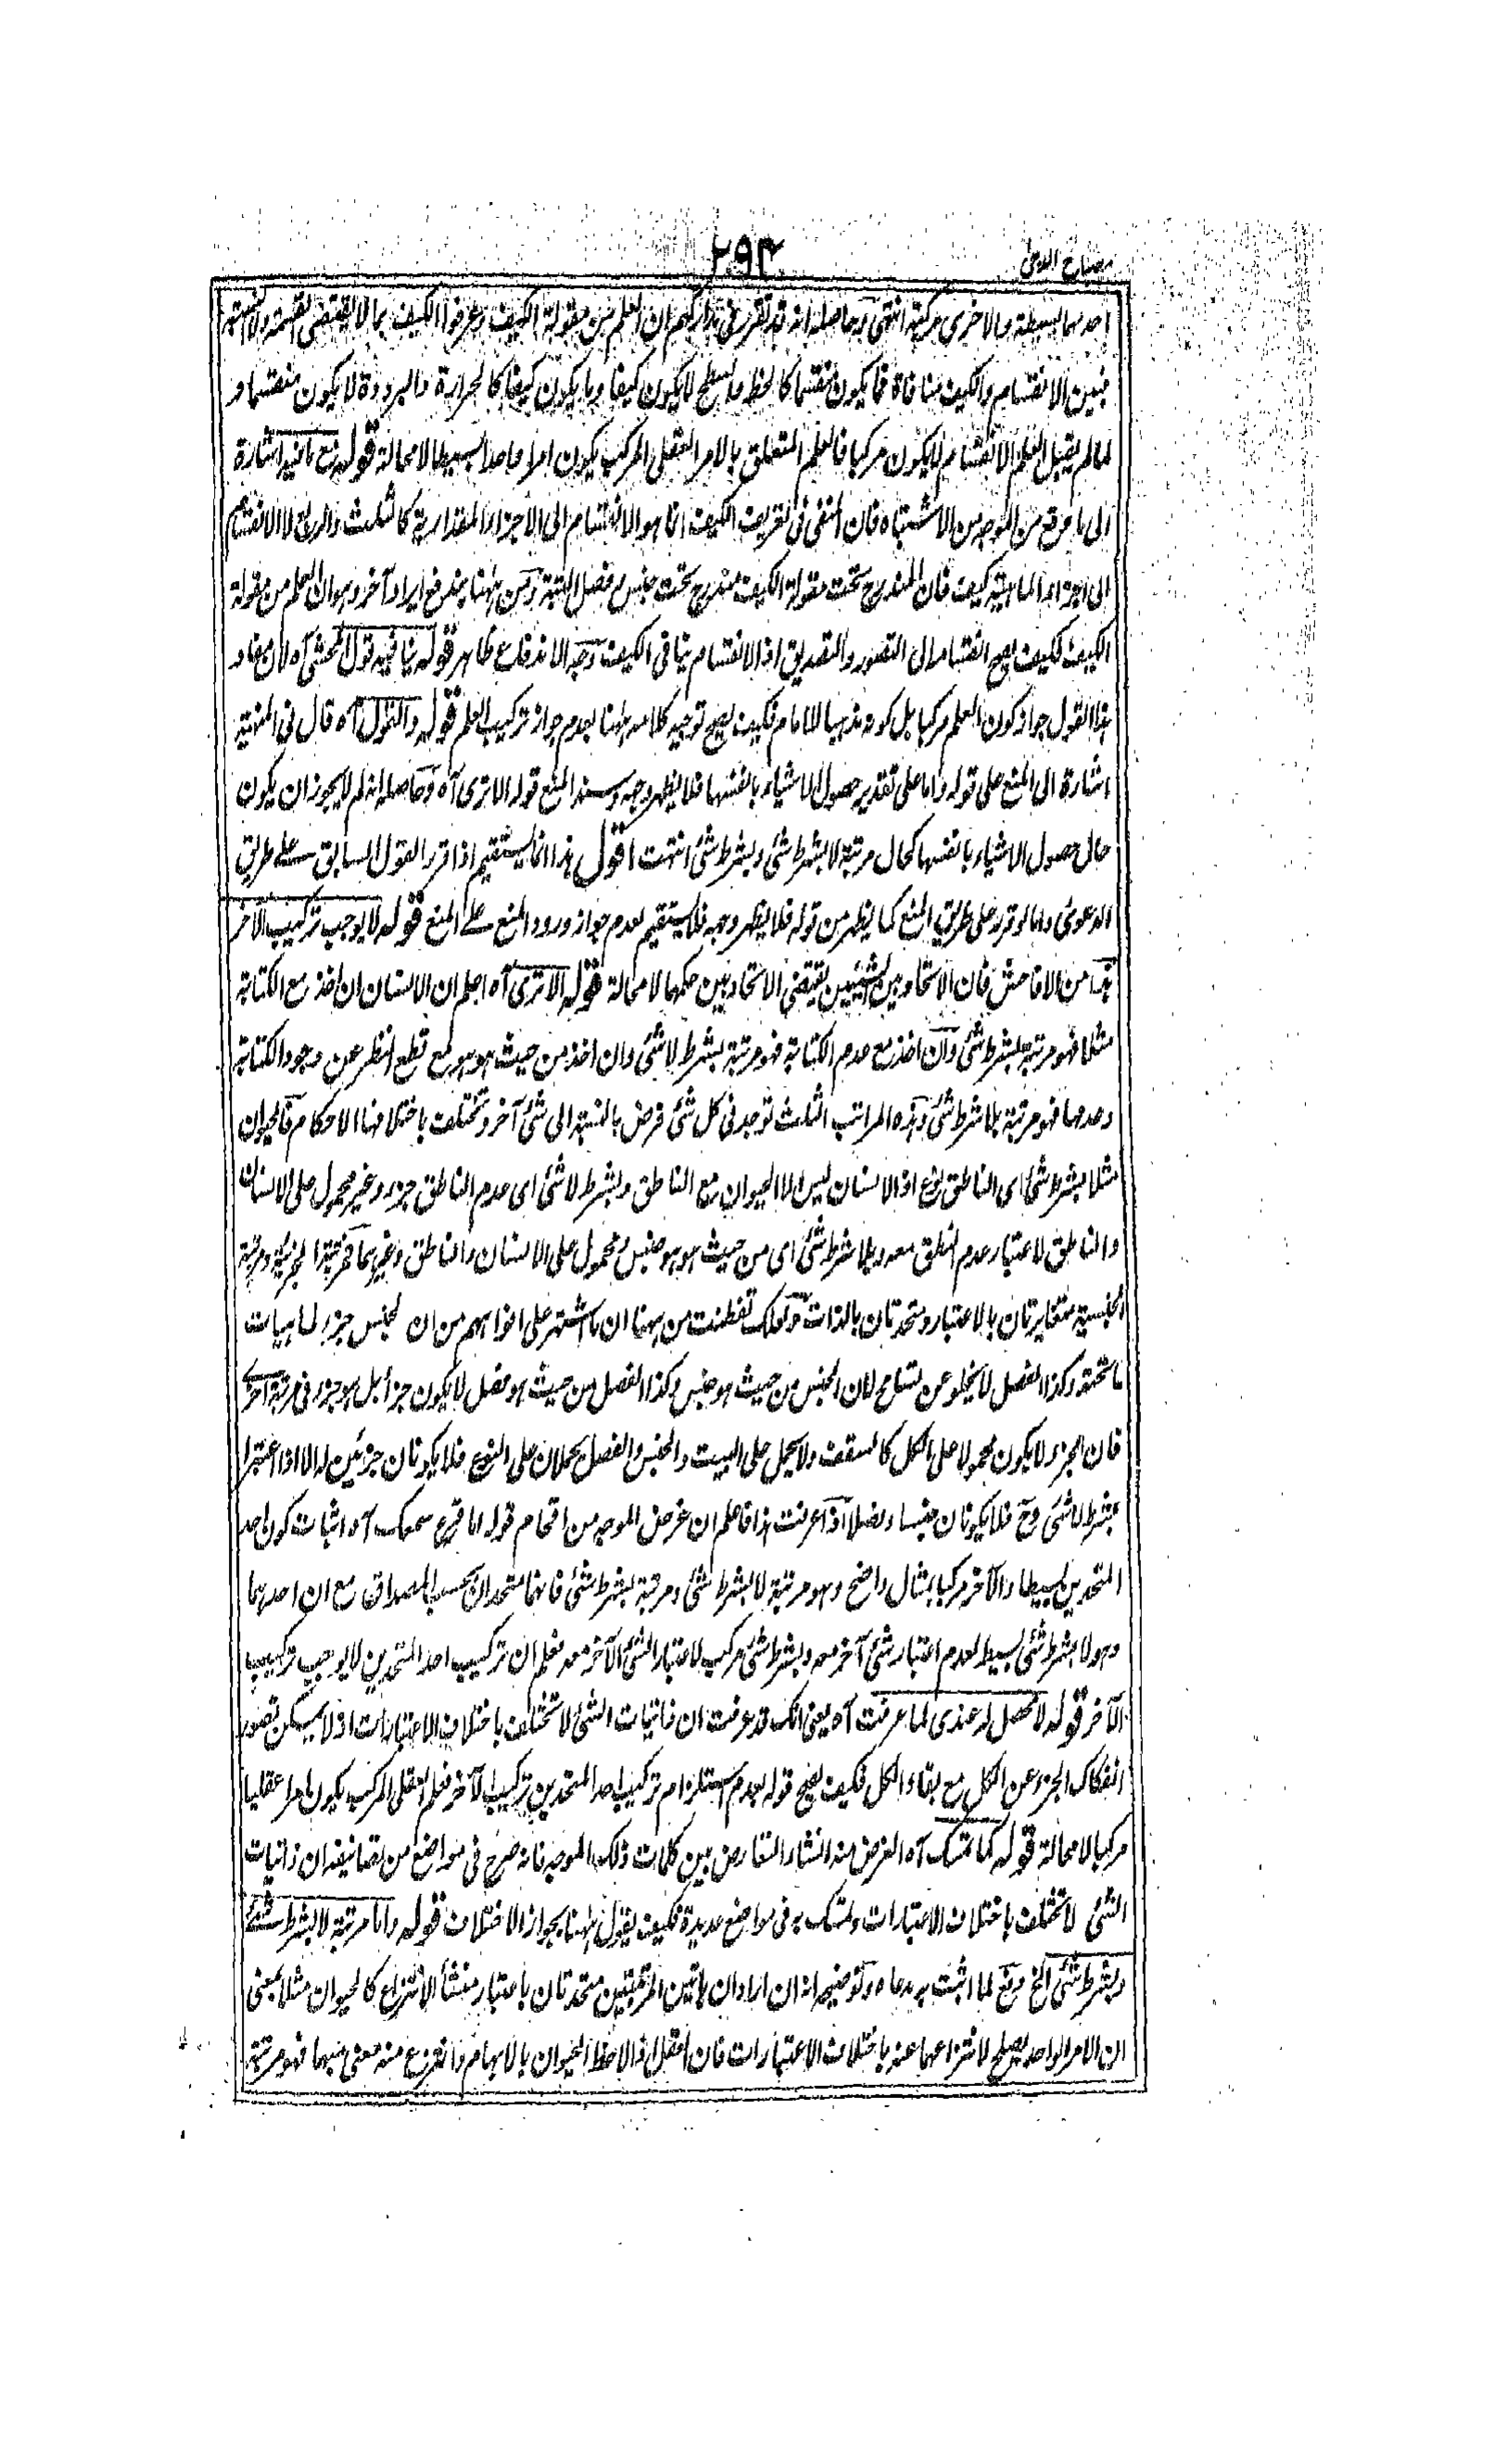 مصباح الدجى
٢٩٢
احدهما بسيطة والاخرى مركبة انتهى وحاصله انه قد تقرر فى مداركهم ان العلم من مقولة الكيف وعرفوا الكيف بما لا يقتضى القسمة واللاقسمة
فبين الانقسام والكيف منافاة فما يكون منقسما كالخط والسطح لا يكون كيفا وما يكون كيفا كالحرارة والبرودة لا يكون منقسما و
لما لم يقبل العلم الانقسام لا يكون مركبا فالعلم المتعلق بالامر العقلى المركب يكون امرا واحدا بسيطا لا محالة قوله مع ما فيه اشارة
الى ما وقع من الموجه من الاشتباه فان المنفى فى تعريف الكيف انما هو الانقسام الى الاجزاء المقدارية كالثلث والربع لا الانقسام
الى اجزاء الماهية كيف فان المندرج تحت مقولة الكيف مندرج تحت جنس وفصل البتة ومن ههنا يندفع ايراد آخر وهو ان العلم من مقولة
الكيف فكيف يصح انقسامه الى التصور والتصديق اذ الانقسام ينافى الكيف وجه الاندفاع ظاهر قوله ينافيه قول المحشى آه لان مفاد
هذا القول جواز كون العلم مركبا بل كونه مذهبا للامام فكيف يصح توجيه كلامه ههنا بعدم جواز تركيب العلم قوله والقول آه قال فى المنهية
اشارة الى المنع على قوله واما على تقدير حصول الاشياء بانفسها فلا يظهر وجهه وسند المنع قوله الا ترى آه وحاصله انه لم لا يجوز ان يكون
حال حصول الاشياء بانفسها كحال مرتبة لا بشرط شئ وبشرط شئ انتهت اقول هذا انما يستقيم اذا قرر القول السابق على طريق
الدعوى واما لو قرر على طريق المنع كما يظهر من قوله فلا يظهر وجهه فلا يستقيم لعدم جواز ورود المنع على المنع قوله لا يوجب تركيب الآخر
هذا من الافاحش فان الاتحاد بين الشيئين يقتضى الاتحاد بين حكمهما لا محالة قوله الا ترى آه اعلم ان الانسان ان اخذ مع الكتابة
مثلا فهو مرتبة بشرط شئ وان اخذ مع عدم الكتابة فهو مرتبة بشرط لا شئ وان اخذ من حيث هو هو مع قطع النظر عن وجود الكتابة
وعدمها فهو مرتبة بلا شرط شئ وهذه المراتب الثلث توجد فى كل شئ فرض بالنسبة الى شئ آخر وتختلف باختلافها الاحكام فالحيوان
مثلا بشرط شئ اى الناطق نوع اذ الانسان ليس الا الحيوان مع الناطق وبشرط لا شئ اى عدم الناطق جزء وغير محمول على الانسان
والناطق لاعتبار عدم النطق معه وبلا شرط شئ اى من حيث هو هو جنس ومحمول على الانسان والناطق وغيرهما فمرتبة الجزئية ومرتبة
الجنسية متغايرتان بالاعتبار ومتحدتان بالذات ولعلك تفطنت من ههنا ان ما اشتهر على افواههم من ان الجنس جزء لماهيات
ما تحته وكذا الفصل لا يخلو عن تسامح لان الجنس من حيث هو جنس وكذا الفصل من حيث هو فصل لا يكون جزأ بل هو جزء فى مرتبة اخرى
فان الجزء لا يكون محمولا على الكل كالسقف ولا يحمل على البيت والجنس والفصل يحملان على النوع فلا يكونان جزئين له الا اذا اعتبرا
بشرط لا شئ وح فلا يكونان جنسا وفصلا اذا عرفت هذا فاعلم ان غرض الموجه من اقحام قوله اما قرع سمعك آه اثبات كون احد
المتحدين بسيطا والآخر مركبا بمثال واضح وهو مرتبة لا بشرط شئ ومرتبة بشرط شئ فانهما متحدان بحسب المصداق مع ان احدهما
وهو لا بشرط شئ بسيط لعدم اعتبار شئ آخر معه وبشرط شئ مركب لاعتبار الشئ الآخر معه فعلم ان تركيب احد المتحدين لا يوجب تركيب
الآخر قوله لا محصل له عندى لما عرفت آه يعنى انك قد عرفت ان ذاتيات الشئ لا تختلف باختلاف الاعتبارات اذ لا يمكن تصور
انفكاك الجزء عن الكل مع بقاء الكل فكيف يصح قوله بعدم استلزام تركيب احد المتحدين تركيب الآخر فعلم العقلى المركب يكون امرا عقليا
مركبا لا محالة قوله كما تمسك آه الغرض منه انشاء التعارض بين كلمات ذلك الموجه فانه صرح فى مواضع من تصانيفه ان ذاتيات
الشئ لا تختلف باختلاف الاعتبارات وتمسك به فى مواضع عديدة فكيف يقول ههنا بجواز الاختلاف قوله واما مرتبة لا بشرط شئ
وبشرط شئ الخ دفع لما اثبت به مدعاه وتوضيحه انه ان اراد ان هاتين المرتبتين متحدتان باعتبار منشأ الانتزاع كالحيوان مثلا بمعنى
ان الامر الواحد يصلح لانتزاعهما عنه باختلاف الاعتبارات فان العقل اذا لاحظ الحيوان بالابهام وانتزع منه معنى مبهما فهو مرتبة